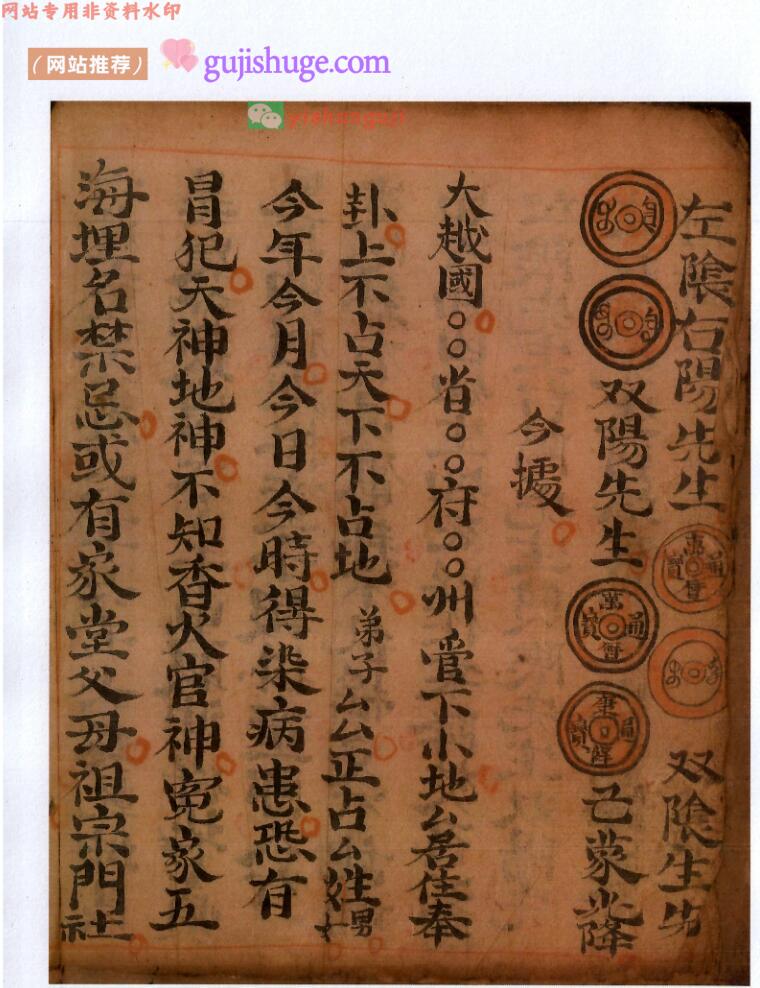 网站专用非资料水印
（网站推荐） gujishuge.com
yishuguji
左陰右陽先生 双陰生先
双陽先生 已蒙光降
今據
大越國○○省○○府○○州管下小地厶居住奉
卦上不占天下不占地 弟子厶厶正占厶姓男女
今年今月今日今時得染病患恐有
冒犯天神地神不知香火官神寃家五
海埋名禁忌或有家堂父母祖宗門社